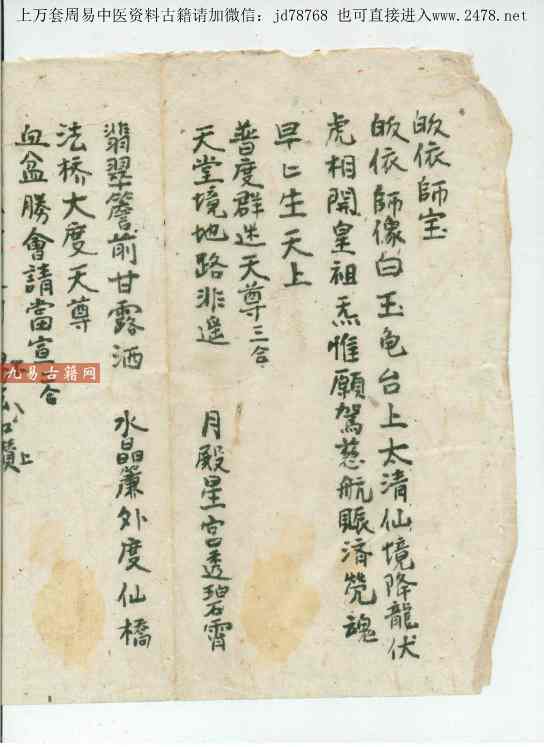 上万套周易中医资料古籍请加微信：jd78768 也可直接进入www.2478.net
皈依師宝
皈依師像白玉龟台上太清仙境降龍伏
虎相開皇祖炁惟願駕慈航賑済兠魂
早〻生天上
普度群迷天尊三合
天堂境地路非遥 月殿星宫透碧霄
翡翠簷前甘露洒 水晶簾外度仙橋
法桥大度天尊
血盆勝會請當宣 合
九易古籍网